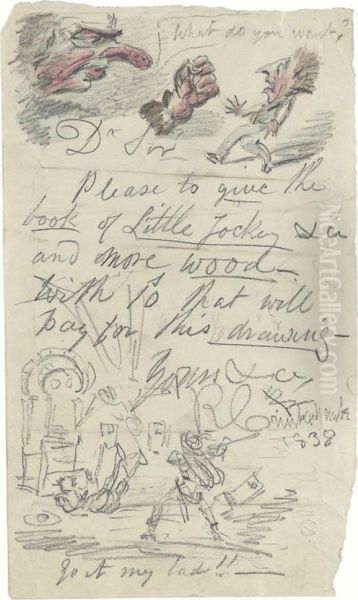 What do you want?
Dr Sir
Please to give the
book of Little Jockey &c
and more wood—
with to that will
pay for this drawing—
Yours &c
R Cruikshank
1838
Go it my lad!!—
NiceArtGallery.com